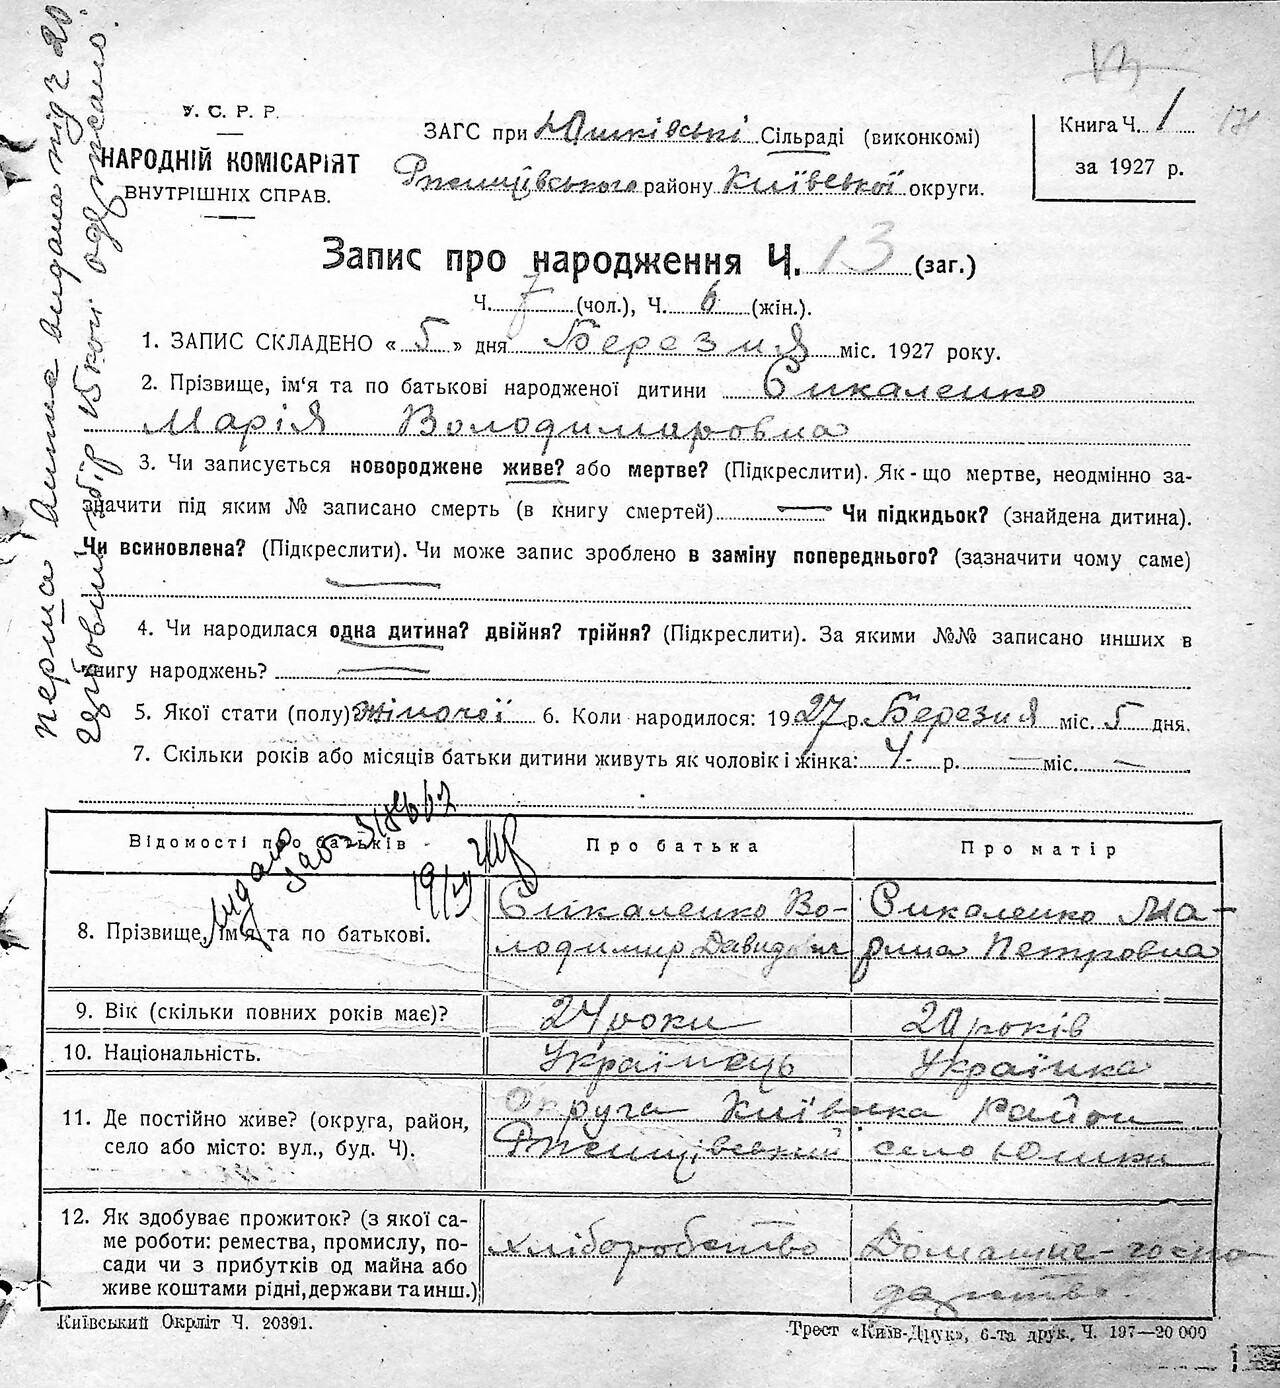 У. С. Р. Р.
НАРОДНІЙ КОМІСАРІЯТ
ВНУТРІШНІХ СПРАВ.
ЗАГС при Юшківські Сільраді (виконкомі)
Ржищівського району Київської округи.
Книга Ч. 1
за 1927 р.
Запис про народження Ч. 13 (заг.)
Ч. 7 (чол.), Ч. 6 (жін.).
1. ЗАПИС СКЛАДЕНО « 5 » дня Березня міс. 1927 року.
2. Прізвище, ім'я та по батькові народженої дитини Сикаленко
Марія Володимировна
3. Чи записується новороджене живе? або мертве? (Підкреслити). Як-що мертве, неодмінно за-
значити під яким № записано смерть (в книгу смертей) — Чи підкидьок? (знайдена дитина).
Чи всиновлена? (Підкреслити). Чи може запис зроблено в заміну попереднього? (зазначити чому саме)
—
4. Чи народилася одна дитина? двійня? трійня? (Підкреслити). За якими №№ записано инших в
книгу народжень? —
5. Якої стати (полу)? жіночої 6. Коли народилося: 1927 р. Березня міс. 5 дня.
7. Скільки років або місяців батьки дитини живуть як чоловік і жінка: 4 р. — міс. —
Відомості про батьків Про батька Про матір
8. Прізвище, ім'я та по батькові.
Сикаленко Во-
лодимир Давидович
Сикаленко Ма-
рина Петровна
9. Вік (скільки повних років має)? 24 роки 20 років
10. Національність. Українець Українка
11. Де постійно живе? (округа, район,
село або місто: вул., буд. Ч).
Округа Київська Район
Ржищівський село Юшки
12. Як здобуває прожиток? (з якої са-
ме роботи: ремества, промислу, по-
сади чи з прибутків од майна або
живе коштами рідні, держави та инш.)
хліборобство
Домашнє-госпо
дарство.
Київський Окрліт Ч. 20391.
Трест «Київ-Друк», 6-та друк. Ч. 197—20 000